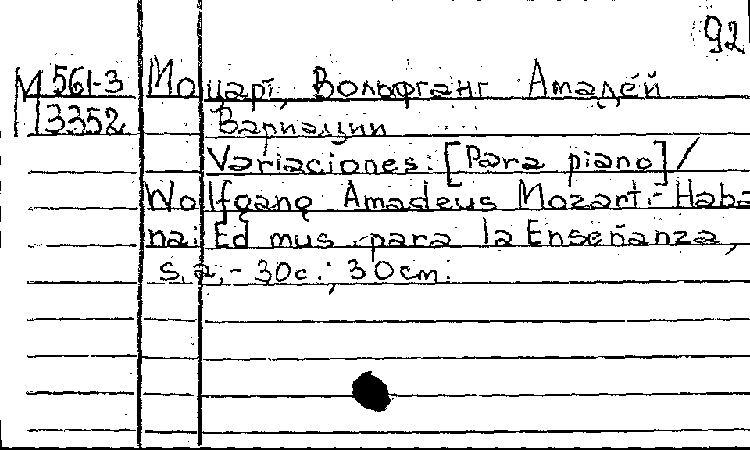 92
М 561-3 Моцарт, Вольфганг Амадей
13352 Вариации
Variaciones: [Para piano] /
Wolfgang Amadeus Mozart.- Haba
na: Ed mus. para la Enseñanza,
s.a.- 30c.; 30cm.